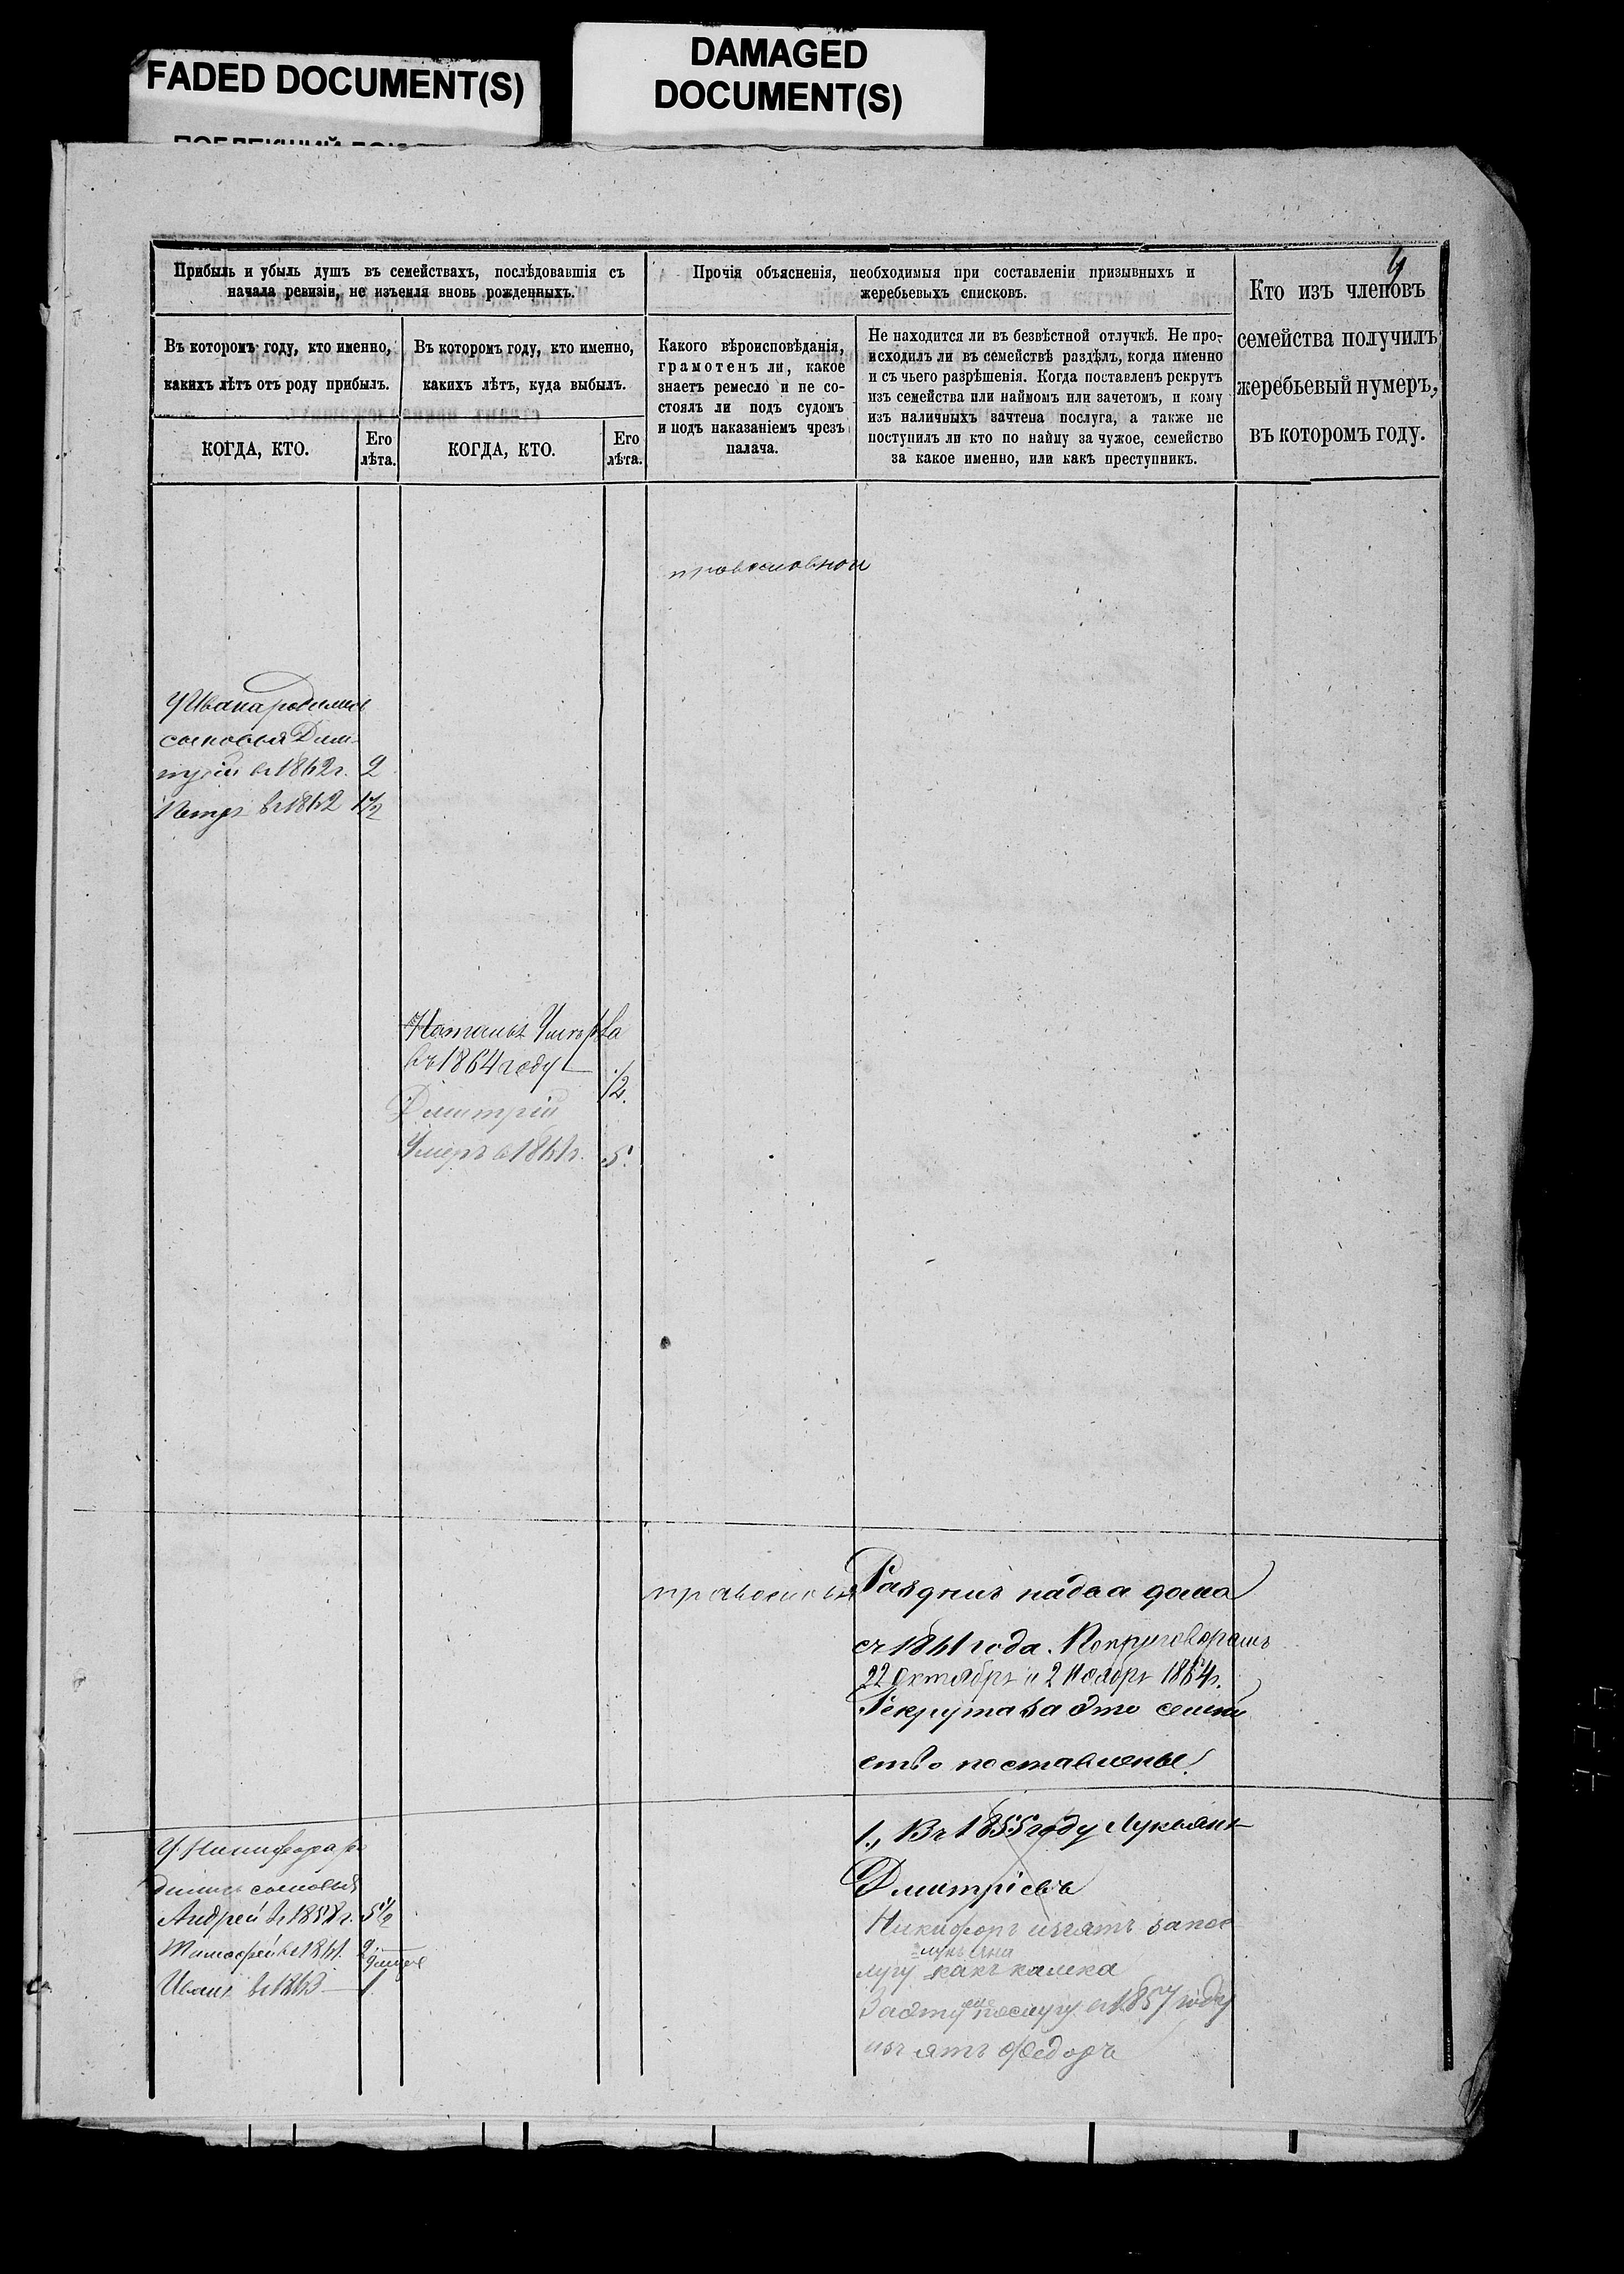 FADED DOCUMENT(S)
DAMAGED
DOCUMENT(S)
Прибыль и убыль душъ въ семействахъ, послѣдовавшія съ
начала ревизіи, не изъемля вновь рожденныхъ.
Въ которомъ году, кто именно,
какихъ лѣтъ отъ роду прибылъ.
Въ которомъ году, кто именно,
какихъ лѣтъ, куда выбылъ.
КОГДА, КТО.
Его
лѣта.
КОГДА, КТО.
Его
лѣта.
Прочія объясненія, необходимыя при составленіи призывныхъ и
жеребьевыхъ списковъ.
Какого вѣроисповѣданія,
грамотенъ ли, какое
знаетъ ремесло и не со-
стоялъ ли подъ судомъ
и подъ наказаніемъ чрезъ
палача.
Не находится ли въ безвѣстной отлучкѣ. Не про-
исходилъ ли въ семействѣ раздѣлъ, когда именно
и съ чьего разрѣшенія. Когда поставленъ рекрутъ
изъ семейства или наймомъ или зачетомъ, и кому
изъ наличныхъ зачтена послуга, а также не
поступилъ ли кто по найму за чужое, семейство
за какое именно, или какъ преступникъ.
Кто изъ членовъ
семейства получилъ
жеребьевый нумеръ,
въ которомъ году.
православной
У Ивана родились
сыновья Дим-
трій въ 1862г. 2
Петръ въ 1862 1/2
Умеръ
въ 1864 году 1/2.
Димитрій
Умеръ в 1861г. 5.
на два дома
съ 1861 года. По приговорамъ
22 Октября и 2 Ноября 1864г.
Рекрута за это семей
ство поставлены.
У Никифора ро
дились сыновья
Андрей въ 1858г. 5 1/2
Тимофей въ 1861. 2
Иванъ въ 1863 — 1
1., Въ 1855 году Лукьянъ
Дмитріевъ
Никифоръ изъятъ за пос
лугу
За эту послугу въ 1857 году
изъятъ Федоръ